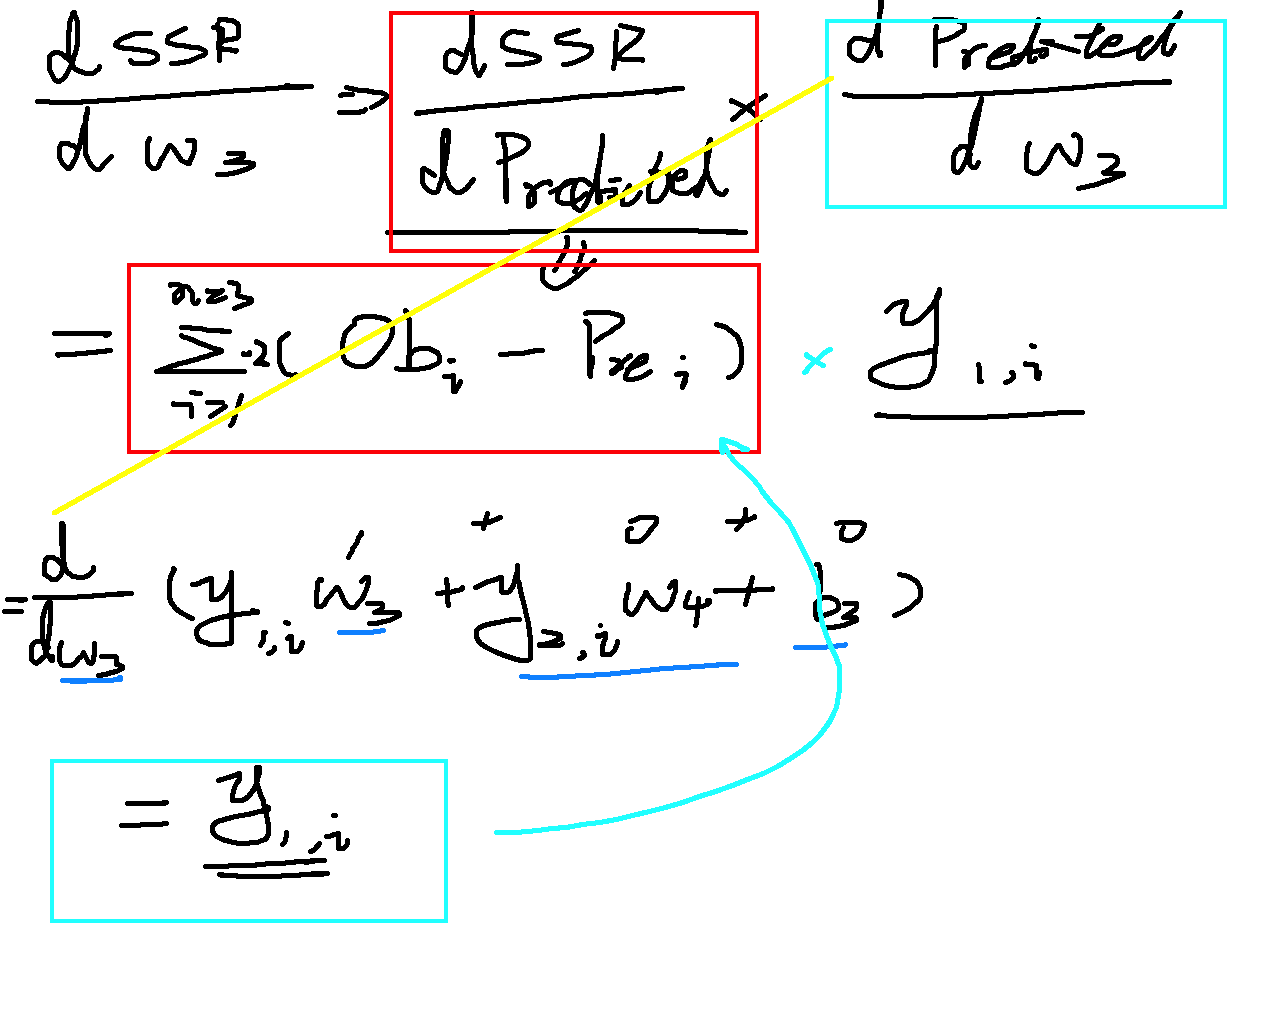 d SSR / d w3 => d SSR / d Predicted × d Predicted / d w3
= Σ n=3 i=1 -2( Obi - Prei ) × y1,i
= d / dw3 ( y1,i w3 + y2,i w4 + b3 ) 1 + 0 + 0
= y1,i